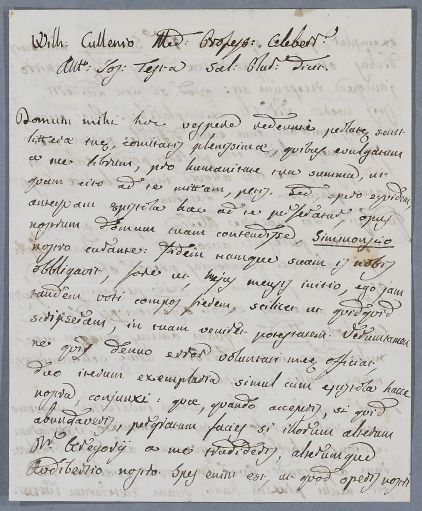 Wilh: Cullenio Med: Profess: Celeberr.
Ant: Jos: Testa Sal: Plur: dicit.
Domum mihi hoc vespere redeunti perlatæ sunt
litteræ tuæ, comitatis plenissimæ, quibus evulgatum
a me librum, pro humanitate tua summa, ut
quam cito ad te mittam, petis. Sed opto equidem,
antequam epistola hæc ad te perferatur, opus
nostrum domum tuam contendisse, Simmonsio
nostro curante: fidem namque suam is nobis
obbligavit, fore ut, hujus mensis initio, ego jam
tandem voti compos fierem, scilicet ut quidquid
scripseram, in tuam veniret potestatem. Verumtamen
ne quid denuo error voluntati meæ officiat
duo iterum exemplaria simul cum epistola hacce
nostra, conjunxi: quæ, quando acceperis, si quid
abundaverit, pergratum facies si illorum alterum
Dr. Gregorij a me tradideris, alterumque
nostro spes enim est, ut quod operis nostri